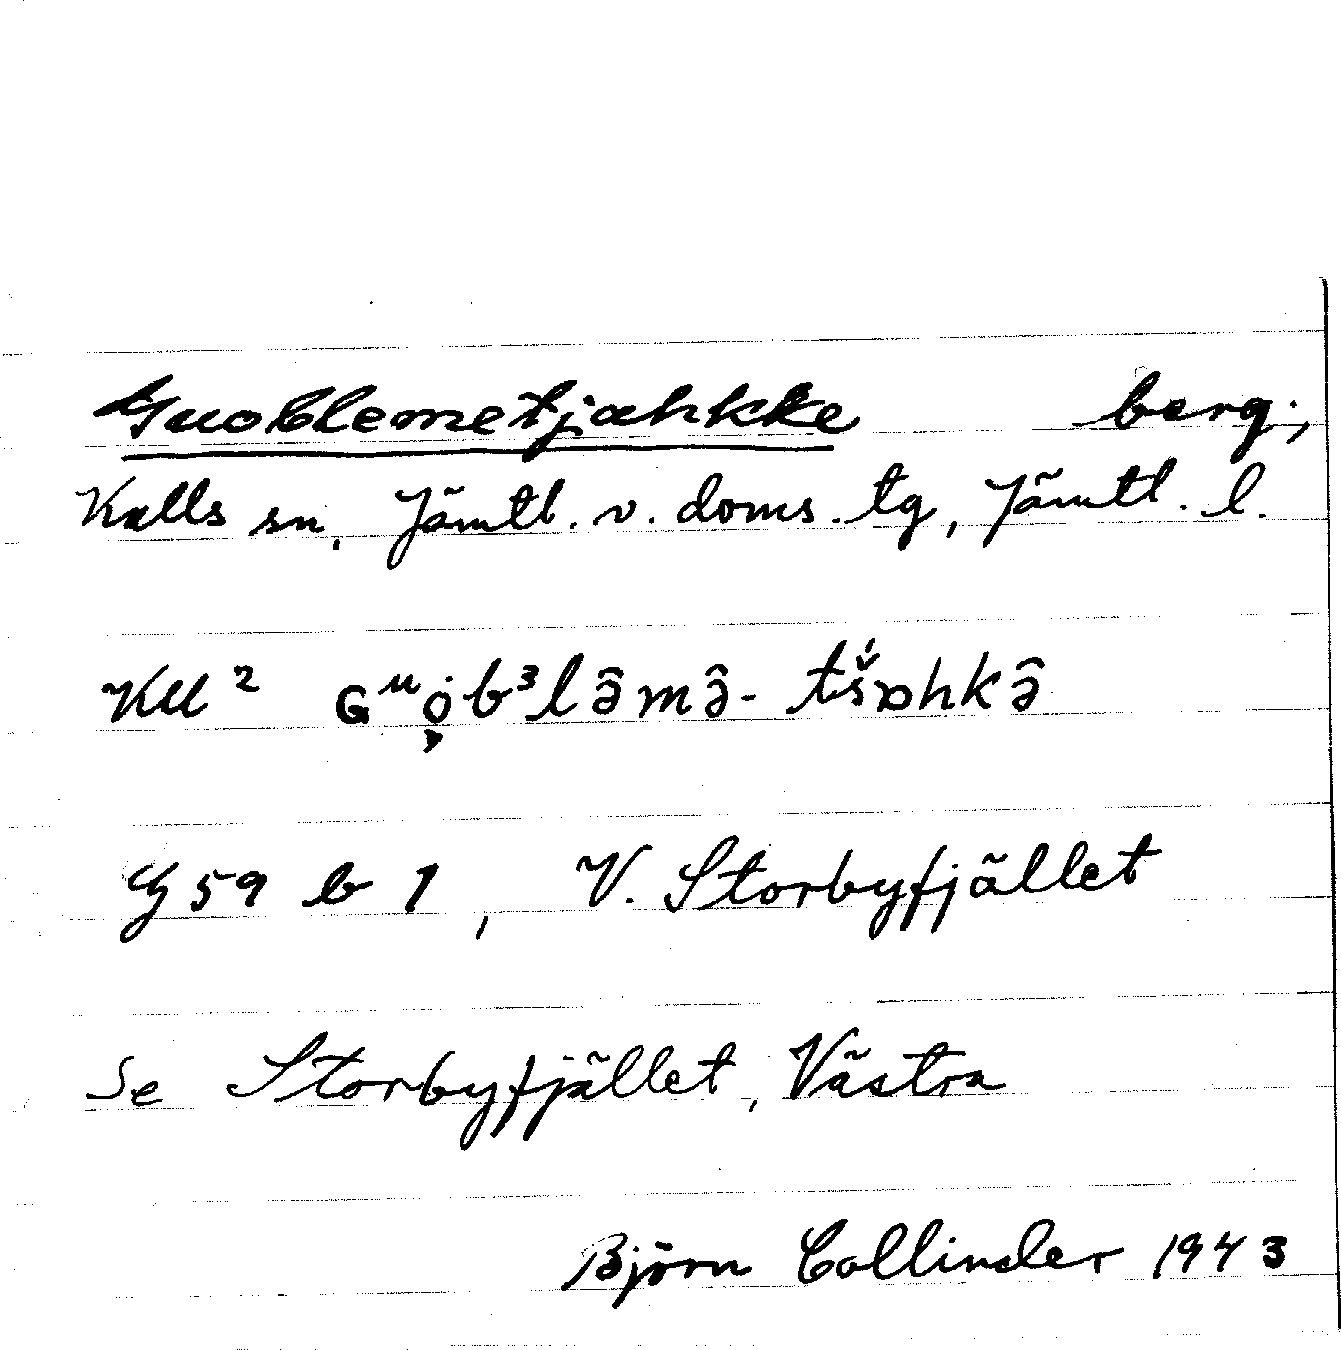 Guoblemetjahkke berg;
Kalls sn, Jämtl. v. doms. tg, Jämtl. l.
Kll ² ɢᵘọ̇b³lə̂mə̂- tš́ɒhkə̂
G 59 b 1, V. Storbyfjället
Se Storbyfjället, Västra
Björn Collinder 1943